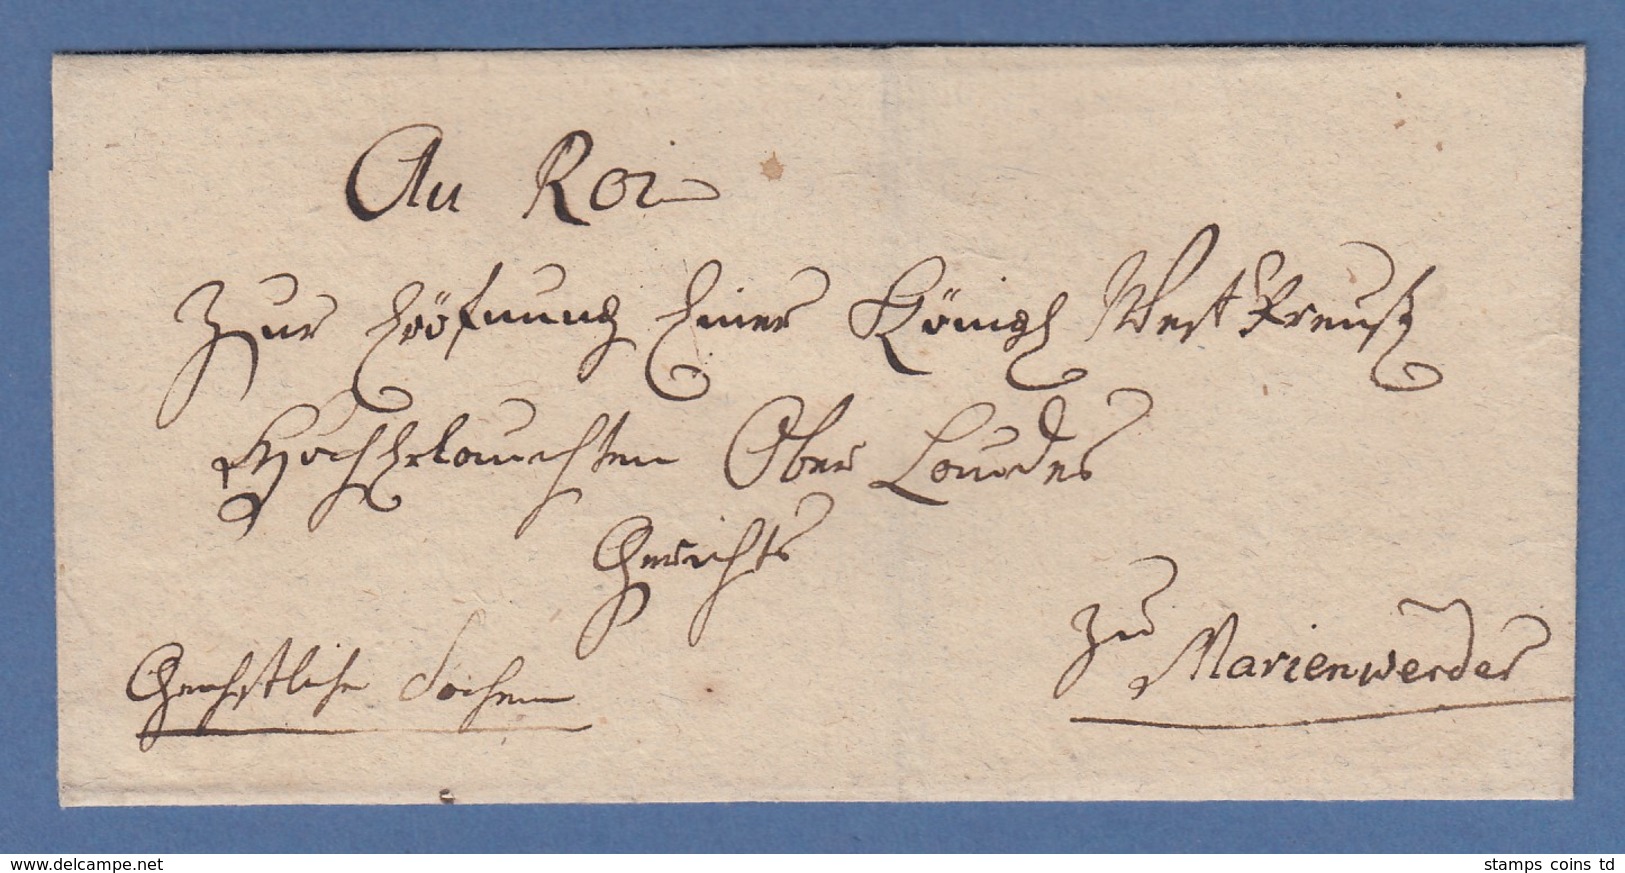 Au Roi
Zur Eröfnung Einer Königl West Preuß
HochErlauchten Ober Landes
Gerichts
zu
Marienwerder
Gerichtliche Sachen
www.delcampe.net
stamps coins td